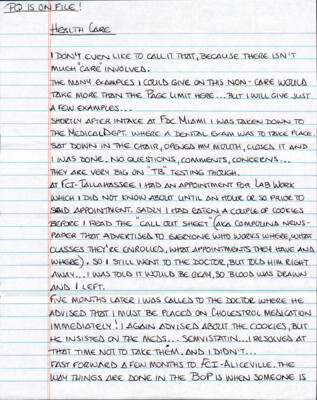 PQ IS ON FILE!
HEALTH CARE
I DON'T EVEN LIKE TO CALL IT THAT, BECAUSE THERE ISN'T
MUCH "CARE" INVOLVED.
THE MANY EXAMPLES I COULD GIVE ON THIS NON-CARE WOULD
TAKE MORE THAN THE PAGE LIMIT HERE... BUT I WILL GIVE JUST
A FEW EXAMPLES...
SHORTLY AFTER INTAKE AT FDC MIAMI I WAS TAKEN DOWN TO
THE MEDICAL DEPT. WHERE A DENTAL EXAM WAS TO TAKE PLACE.
SAT DOWN IN THE CHAIR, OPENED MY MOUTH, CLOSED IT AND
I WAS DONE. NO QUESTIONS, COMMENTS, CONCERNS...
THEY ARE VERY BIG ON "TB" TESTING THOUGH.
AT FCI-TALLAHASSEE I HAD AN APPOINTMENT FOR LAB WORK
WHICH I DID NOT KNOW ABOUT UNTIL AN HOUR OR SO PRIOR TO
SAID APPOINTMENT. SADLY I HAD EATEN A COUPLE OF COOKIES
BEFORE I READ THE "CALL OUT SHEET" (AKA COMPOUND NEWS-
PAPER THAT ADVERTISED TO EVERYONE WHO WORKS WHERE, WHAT
CLASSES THEY'RE ENROLLED, WHAT APPOINTMENTS THEY HAVE AND
WHERE). SO I STILL WENT TO THE DOCTOR, BUT TOLD HIM RIGHT
AWAY... I WAS TOLD IT WOULD BE OKAY, SO BLOOD WAS DRAWN
AND I LEFT.
FIVE MONTHS LATER I WAS CALLED TO THE DOCTOR WHERE HE
ADVISED THAT I MUST BE PLACED ON CHOLESTROL MEDICATION
IMMEDIATELY! I AGAIN ADVISED ABOUT THE COOKIES, BUT
HE INSISTED ON THE MEDS... SEMVISTATIN... I RESOLVED AT
THAT TIME NOT TO TAKE THEM, AND I DIDN'T...
FAST FORWARD A FEW MONTHS TO FCI-ALICEVILLE. THE
WAY THINGS ARE DONE IN THE BOP IS WHEN SOMEONE IS